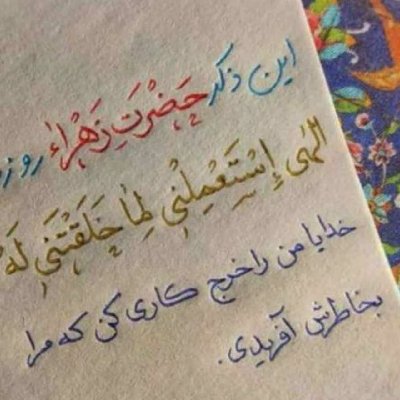 این ذکر حَضْرَتِ زَهْرٰاء روز
الٰهی إِسْتَعْمِلْنِي لِمٰا خَلَقْتَنی لَهُ
خدایا من را خرج کاری کن که مرا
بخاطرش آفریدی.